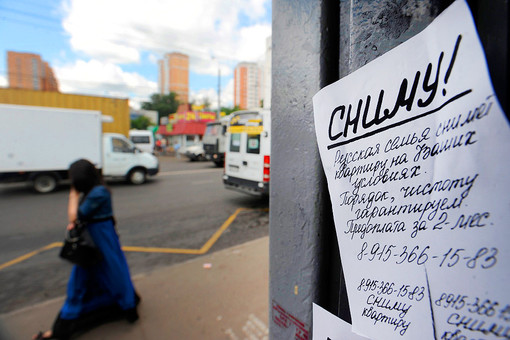 СНИМУ!
Русская семья снимет
квартиру на Ваших
условиях.
Порядок, чистоту
гарантируем
Предоплата за 2 мес.
8-915-366-15-83
8-915-366-15-83
СНИМУ
квартиру
8-915-366-15
СНИМУ